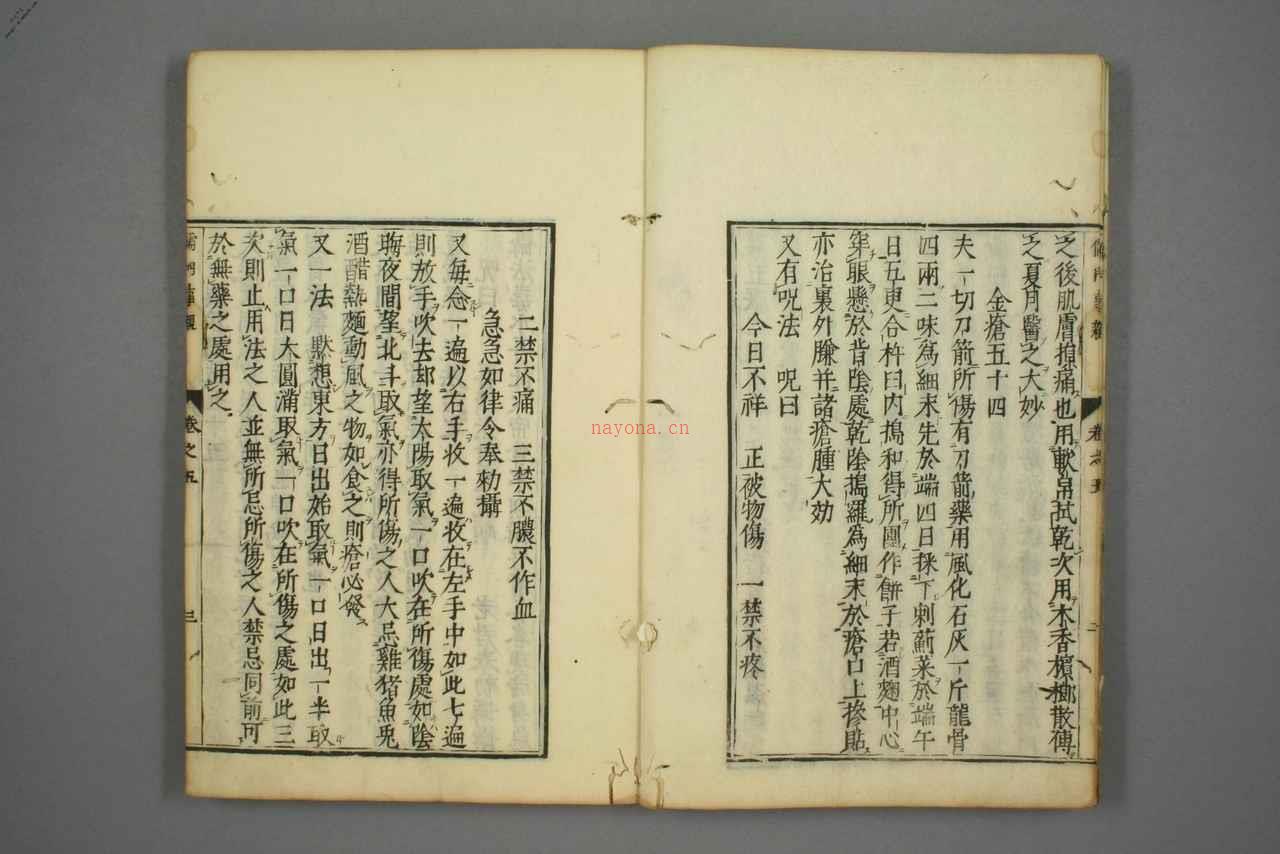 之後肌膚損痛也用軟帛拭乾次用木香檳榔散傅
之夏月醫之大妙
金瘡五十四
夫一切刀箭所傷有刀箭藥用風化石灰一斤龍骨
四兩二味爲細末先於端四日採下刺薊菜於端午
日五更合杵臼内搗和得所團作餅子若酒麴中心
穿眼懸於背陰處乾陰搗羅爲細末於瘡口上摻貼
亦治裏外臁并諸瘡腫大効
又有呪法　呪曰
今日不祥　正被物傷　一禁不疼
二禁不痛　三禁不膿不作血
急急如律令奉勑攝
又毎念一遍以右手收一遍收在左手中如此七遍
則放手吹去却望太陽取氣一口吹在所傷處如陰
晦夜間望北斗取氣亦得所傷之人大忌雞猪魚兎
酒醋熱麵動風之物如食之則瘡必發
又一法　默想東方日出始取氣一口日出一半取
氣一口日大圓滿取氣一口吹在所傷之處如此三
次則止用法之人並無所忌所傷之人禁忌同前可
於無藥之處用之
卷之五
三
nayona.cn